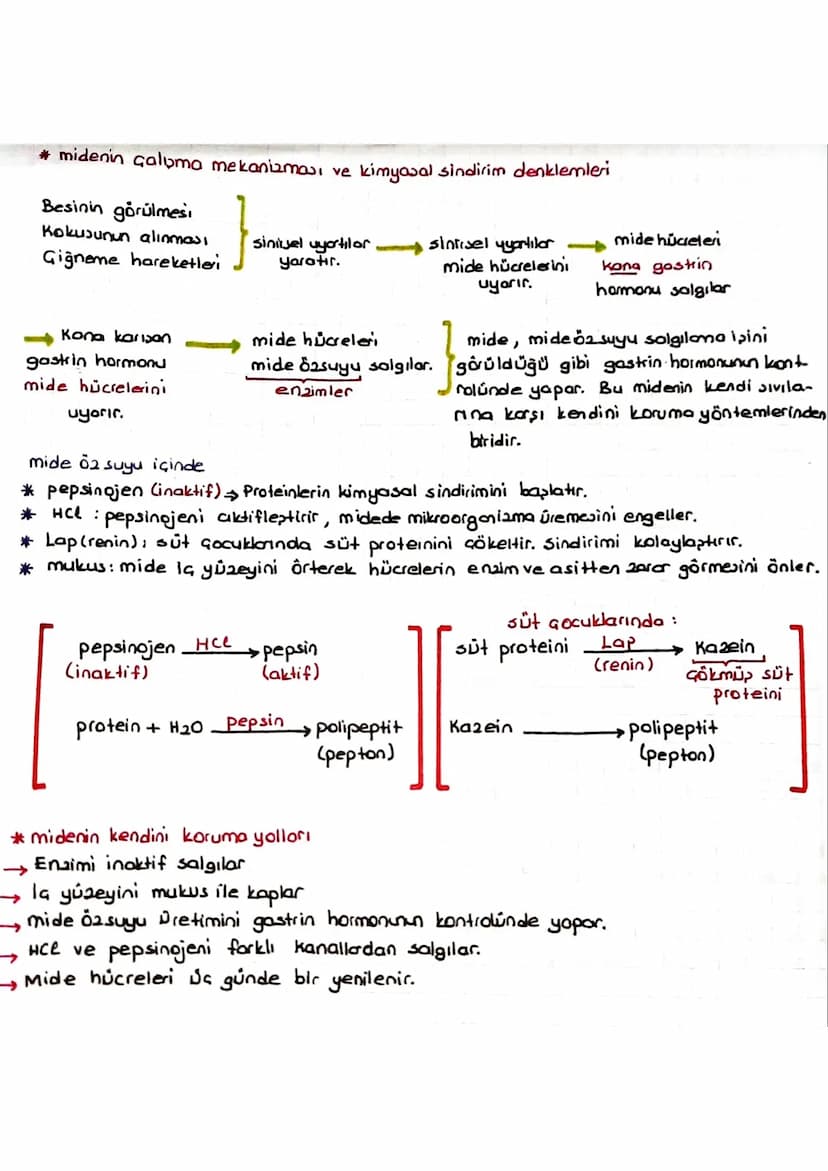 * midenin çalışma mekanizması ve kimyasal sindirim denklemleri
Besinin görülmesi
Kokusunun alınması
Çiğneme hareketleri
sinirsel uyartılar
yaratır.
sinirsel uyartılar
mide hücrelerini
uyarır.
mide hücreleri
kana gastrin
hormonu salgılar
Kana karışan
gastrin hormonu
mide hücrelerini
uyarır.
mide hücreleri
mide özsuyu salgılar.
enzimler
mide, mide özsuyu salgılama işini
görüldüğü gibi gastrin hormonunun kont
rolünde yapar. Bu midenin kendi sıvıla-
rına karşı kendini koruma yöntemlerinden
biridir.
mide öz suyu içinde
* pepsinojen (inaktif) → Proteinlerin kimyasal sindirimini başlatır.
* HCl : pepsinojeni aktifleştirir, midede mikroorganizma üremesini engeller.
* Lap (renin); süt çocuklarında süt proteinini çökeltir. Sindirimi kolaylaştırır.
* mukus: mide iç yüzeyini örterek hücrelerin enzim ve asitten zarar görmesini önler.
pepsinojen HCl → pepsin
(inaktif) (aktif)
protein + H2O pepsin → polipeptit
(pepton)
süt çocuklarında :
süt proteini Lap → Kazein
(renin) çökmüş süt
proteini
Kazein → polipeptit
(pepton)
* midenin kendini koruma yolları
→ Enzimi inaktif salgılar
→ İç yüzeyini mukus ile kaplar
→ mide özsuyu üretimini gastrin hormonunun kontrolünde yapar.
→ HCl ve pepsinojeni farklı kanallardan salgılar.
→ Mide hücreleri üç günde bir yenilenir.